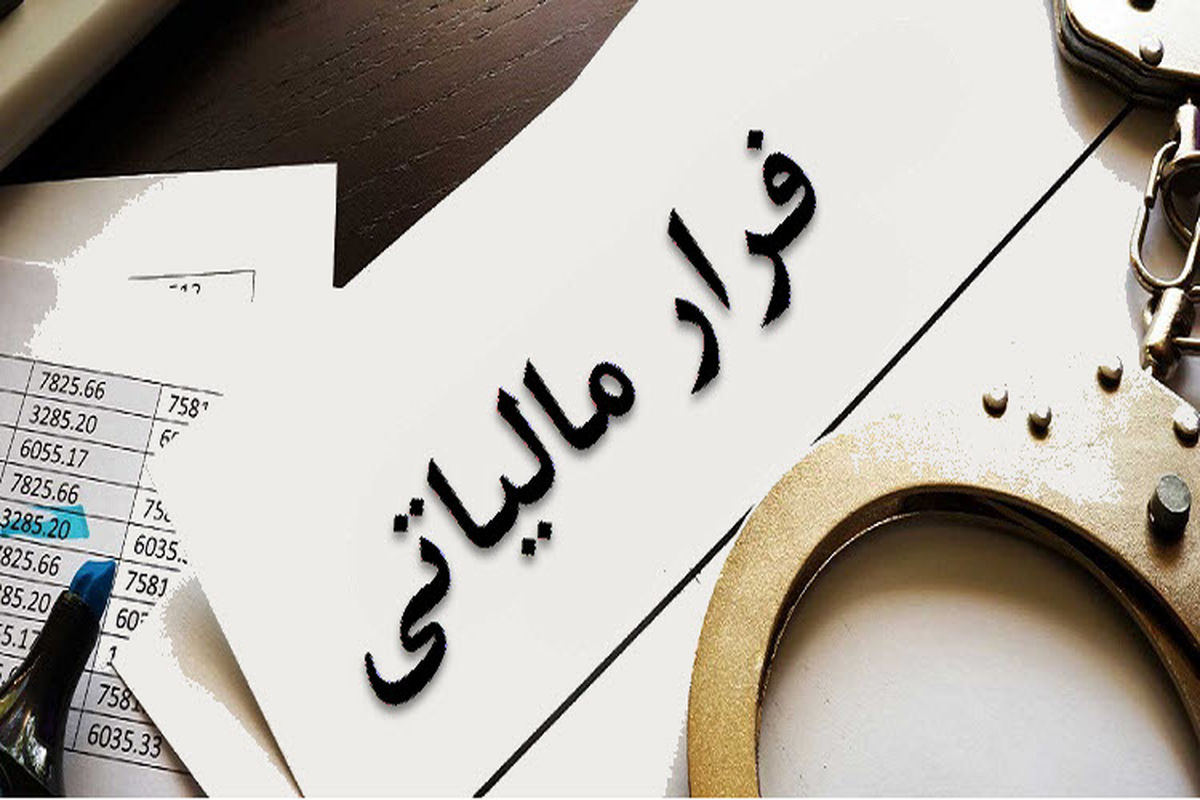 فرار مالیاتی
7825.66 7581
3285.20
6055.17
7825.66
3285.20 6035.
7825.66 7581
85.20
5.1
7581
6035.33